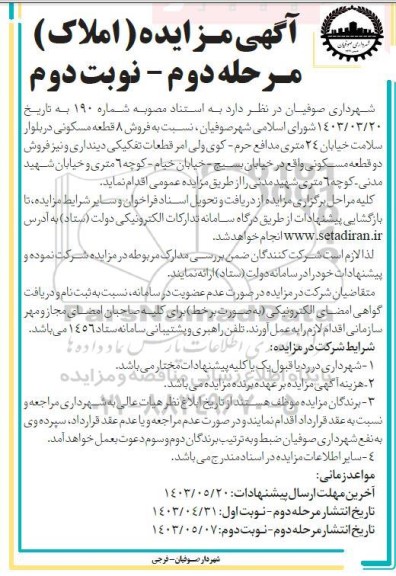 شهرداری صوفیان
آگهی مزایده (املاک)
مرحله دوم - نوبت دوم
شهرداری صوفیان در نظر دارد به استناد مصوبه شماره ۱۹۰ به تاریخ
۱۴۰۳/۰۳/۲۰ شورای اسلامی شهر صوفیان، نسبت به فروش ۸ قطعه مسکونی در بلوار
سلامت خیابان ۲۴ متری مدافع حرم - کوی ولی امر قطعات تفکیکی دینداری و نیز فروش
دو قطعه مسکونی واقع در خیابان بسیج - خیابان خیام - کوچه ۶ متری و خیابان شهید
مدنی-کوچه ۶ متری شهید مدنی را از طریق مزایده عمومی اقدام نماید.
کلیه مراحل برگزاری مزایده از دریافت و تحویل اسناد فراخوان و سایر شرایط مزایده، تا
بازگشایی پیشنهادات از طریق درگاه سامانه تدارکات الکترونیکی دولت (ستاد) به آدرس
www.setadiran.ir انجام خواهد شد.
لذا لازم است شرکت کنندگان ضمن بررسی مدارک مربوطه در مزایده شرکت نموده و
پیشنهادات خود را در سامانه دولت (ستاد) ارائه نمایند.
متقاضیان شرکت در مزایده در صورت عدم عضویت در سامانه، نسبت به ثبت نام و دریافت
گواهی امضای الکترونیکی (به صورت برخط) برای کلیه صاحبان امضای مجاز و مهر
سازمانی اقدام لازم را به عمل آورند. تلفن راهبری و پشتیبانی سامانه ستاد ۱۴۵۶ می باشد.
شرایط شرکت در مزایده:
۱- شهرداری در رد یا قبول یک یا کلیه پیشنهادات مختار می باشد.
۲- هزینه آگهی مزایده بر عهده برنده مزایده می باشد.
۳- برندگان مزایده موظف هستند از تاریخ ابلاغ نظر هیات عالی به شهرداری مراجعه و
نسبت به عقد قرارداد اقدام نمایند و در صورت عدم مراجعه و یا عدم عقد قرارداد، سپرده وی
به نفع شهرداری صوفیان ضبط و به ترتیب برندگان دوم و سوم دعوت بعمل خواهد آمد.
۴- سایر اطلاعات مزایده در اسناد مندرج می باشد.
مواعد زمانی:
آخرین مهلت ارسال پیشنهادات: ۱۴۰۳/۰۵/۲۰
تاریخ انتشار مرحله دوم - نوبت اول: ۱۴۰۳/۰۴/۳۱
تاریخ انتشار مرحله دوم - نوبت دوم: ۱۴۰۳/۰۵/۰۷
شهردار صوفیان - فرجی